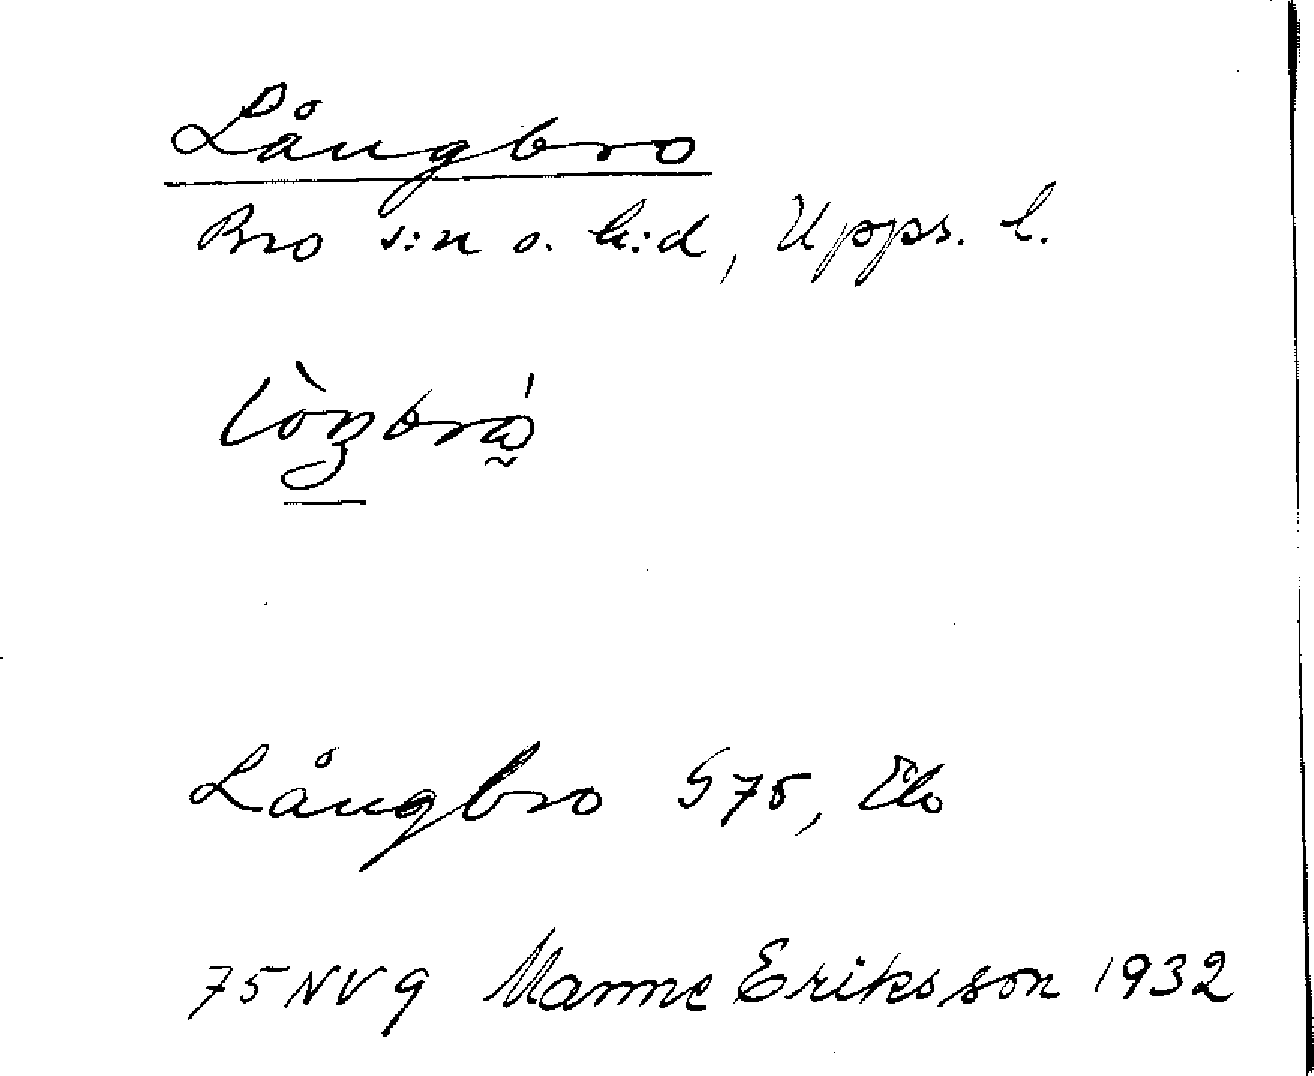 Långbro
Bro s:n o. h:d, Upps. l.
Långbro S75, Ek
75NV9 Manne Eriksson 1932